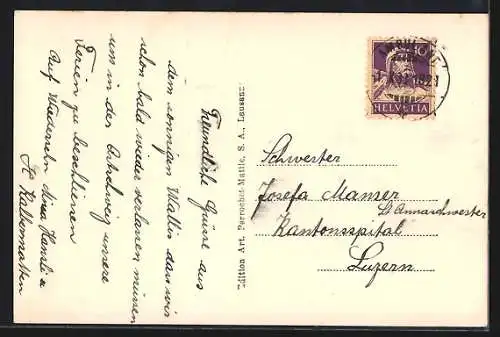 Freundliche Grüsse aus
dem sonnigen Wallis dass wir
schon bald wieder verlassen müssen
um in der unsere
Ferien zu beschliessen
Auf Wiedersehn Hansli u
Kalbermatten
Edition Art. Perrochet-Matile, S. A., Lausanne
10
HELVETIA
Schwester
Josefa Manser
St Annaschwester
Kantonsspital
Luzern